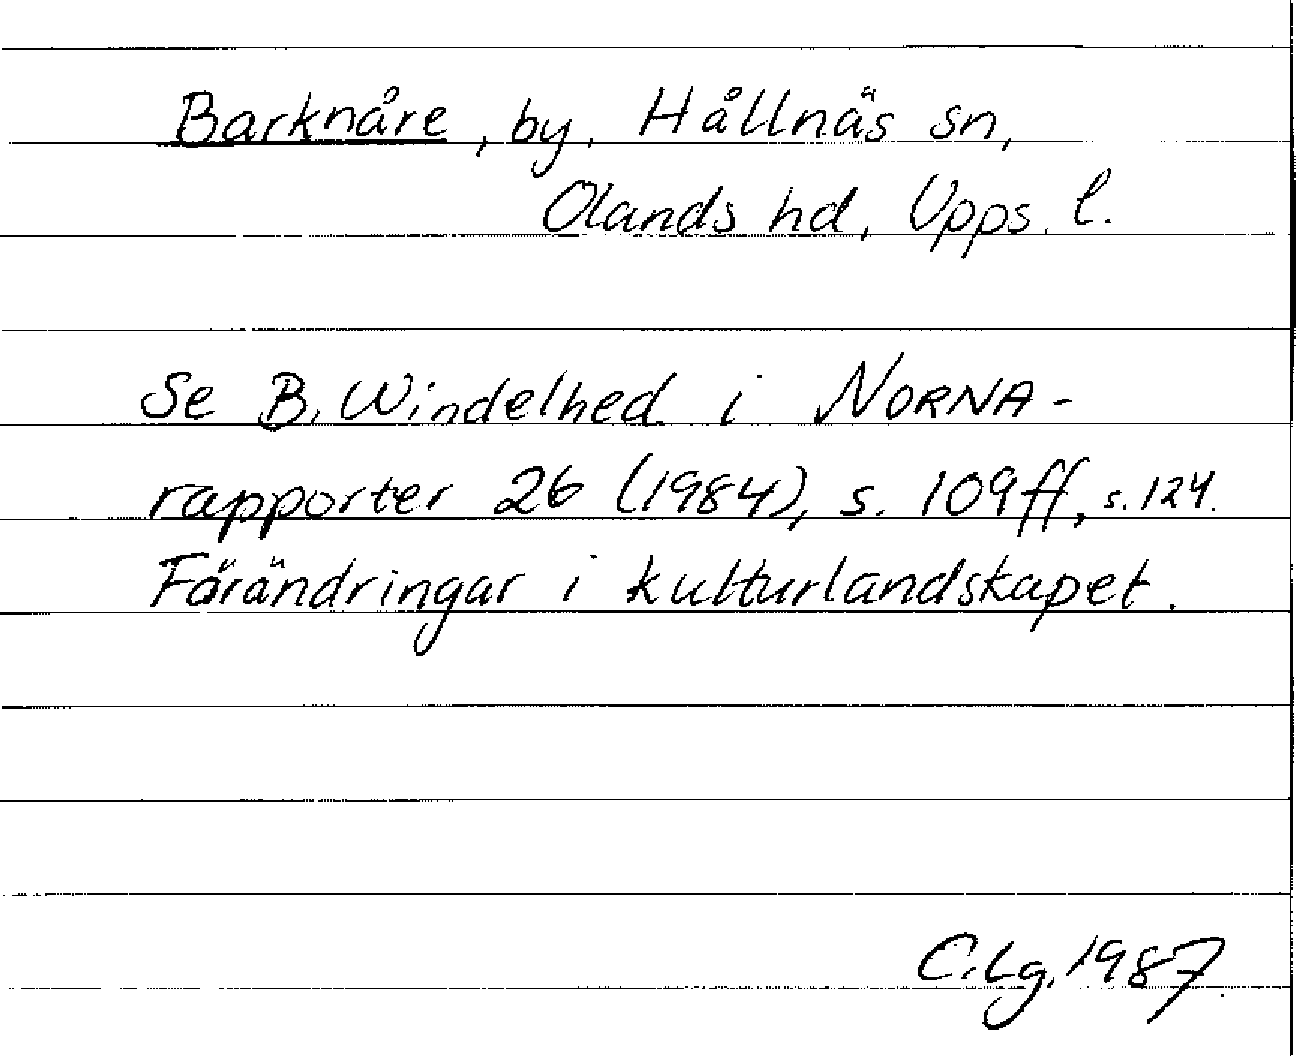 Barknåre, by, Hållnäs sn,
Olands hd, Upps. l.
Se B. Windelhed i NORNA-
rapporter 26 (1984), s. 109ff, s. 124.
Förändringar i kulturlandskapet.
C.Lg. 1987.